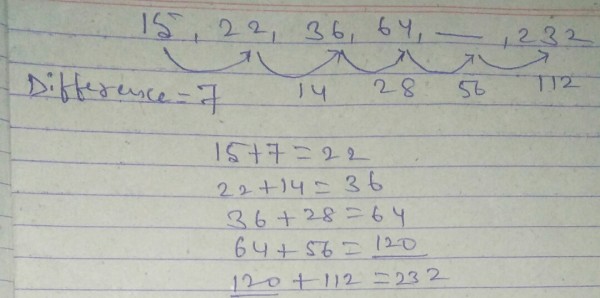 15, 22, 36, 64, __, 232
Difference = 7 14 28 56 112
15+7=22
22+14=36
36+28=64
64+56=120
120+112=232